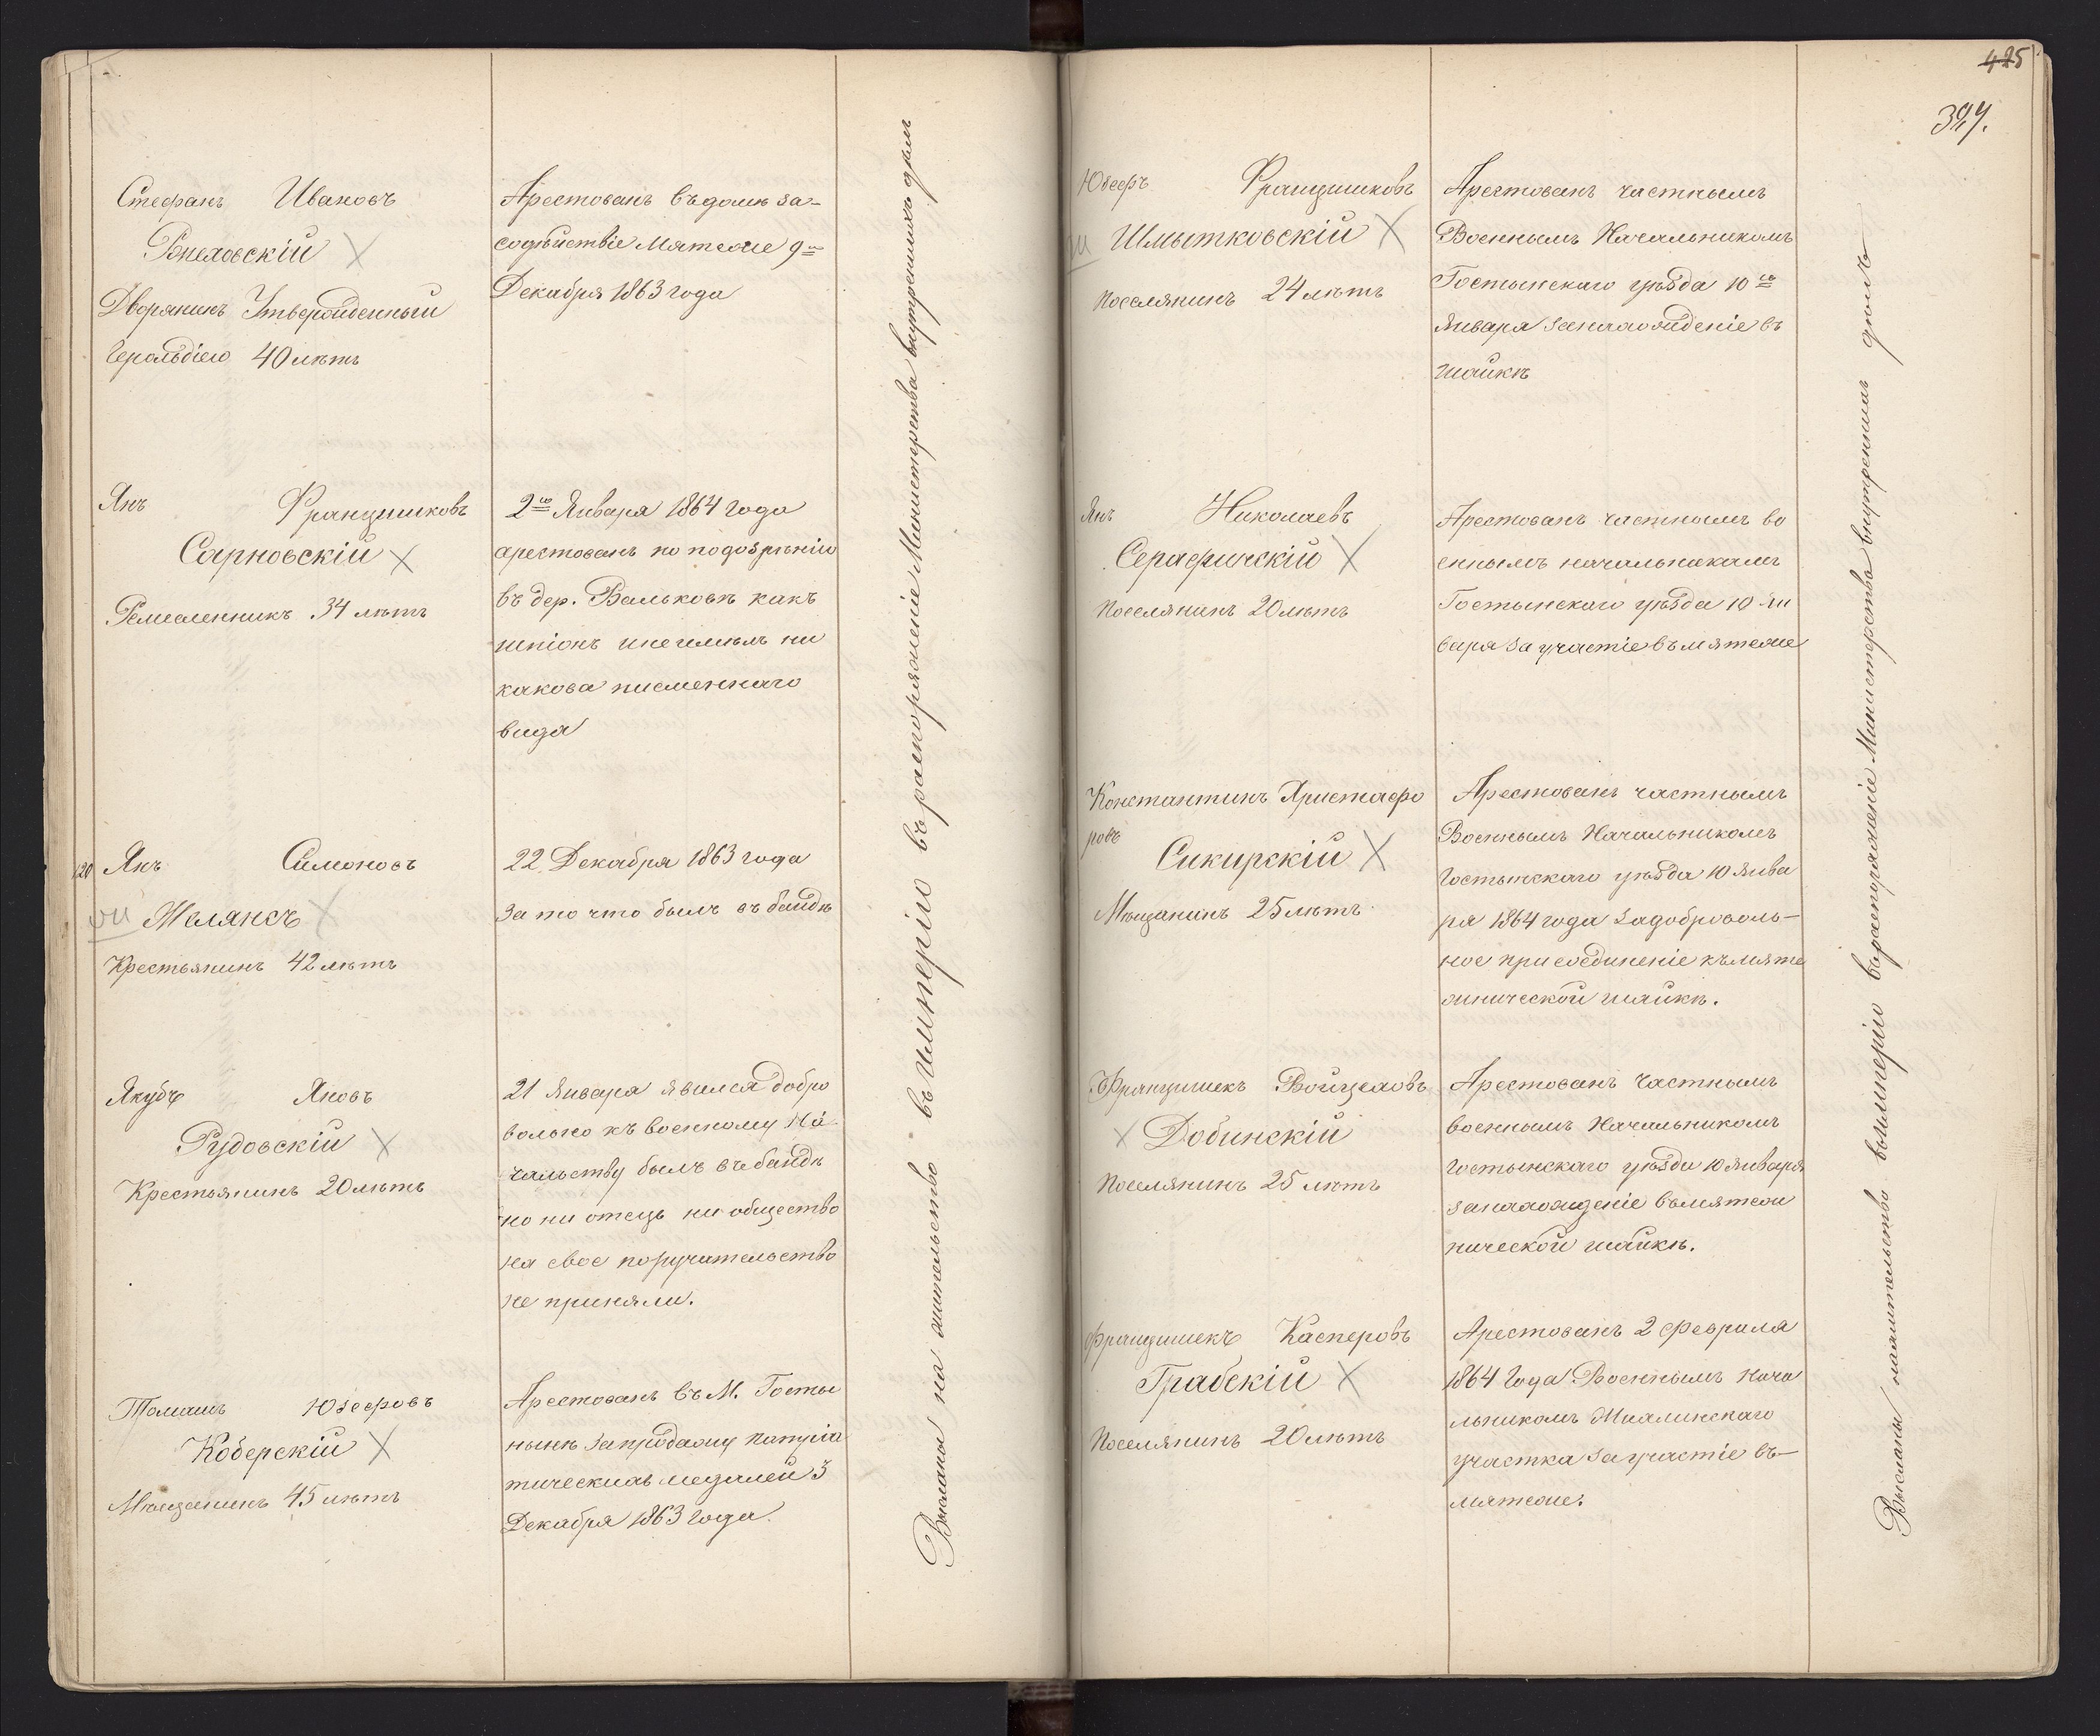 Стефанъ Ивановъ
Рпеховскій
Дворянинъ Утвержденный
Герольдіею 40 лѣтъ
Арестованъ въ домѣ за-
содѣйствіе Мятеже 9го
Декабря 1863 года
Янъ Францишковъ
Сарновскій
Ремесленникъ 34 лѣтъ
2го Января 1864 года
арестованъ по подозрѣнію
въ дер. Вальковѣ какъ
шпіонъ и неимѣлъ ни
какова писменнаго
вида
120 Янъ Симоновъ
VII Желянсъ
Крестьянинъ 42 лѣтъ
22 Декабря 1863 года
за то что былъ въ бандѣ
Якубъ Яновъ
Рудовскій
Крестьянинъ 20 лѣтъ
21 Января явился добро
вольно къ военному На
чальству былъ въ бандѣ
но ни отецъ ни общество
на свое поручительство
не приняли.
Томашъ Юзефовъ
Коберскій
Мѣщанинъ 45 лѣтъ
Арестованъ въ М. Госты
нынѣ за продажу патріа
тическихъ медалей 3
Декабря 1863 года.
Высланы на жительство въ Имперію въ распоряженіе Министерства внутреннихъ дѣлъ
425
394.
Юзефъ Францишковъ
III Шмытковскій
Поселянинъ 24 лѣтъ
Арестованъ частнымъ
Военнымъ Начальникомъ
Гостынскаго уѣзда 10го
Января за нахожденіе въ
шайкѣ
Янъ Николаевъ
Серафинскій
Поселянинъ 20 лѣтъ
Арестованъ частнымъ во
еннымъ начальникамъ
Гостынскаго уѣзда 10 Ян
варя за участіе въ мятеже
Константинъ Христафо
ровъ
Сикирскій
Мѣщанинъ 25 лѣтъ
Арестованъ частнымъ
Военнымъ Начальникомъ
Гостынскаго уѣзда 10 Янва
ря 1864 года за доброволь-
ное присоединеніе къ мяте
жнической шайкѣ.
Францишекъ Войцеховъ
Добинскій
Поселянинъ 25 лѣтъ
Арестованъ Частнымъ
военнымъ Начальникомъ
Гостынскаго уѣзда 10 Января
за нахожденіе въ мятеж
нической шайкѣ.
Францишекъ Касперовъ
Грабскій
Поселянинъ 20 лѣтъ
Арестованъ 2 Февраля
1864 Года Военнымъ Нача
льникомъ
участка за участіе въ-
мятеже.
Высланы на жительство въ Имперію въ распоряженіе Министерства внутреннихъ дѣлъ